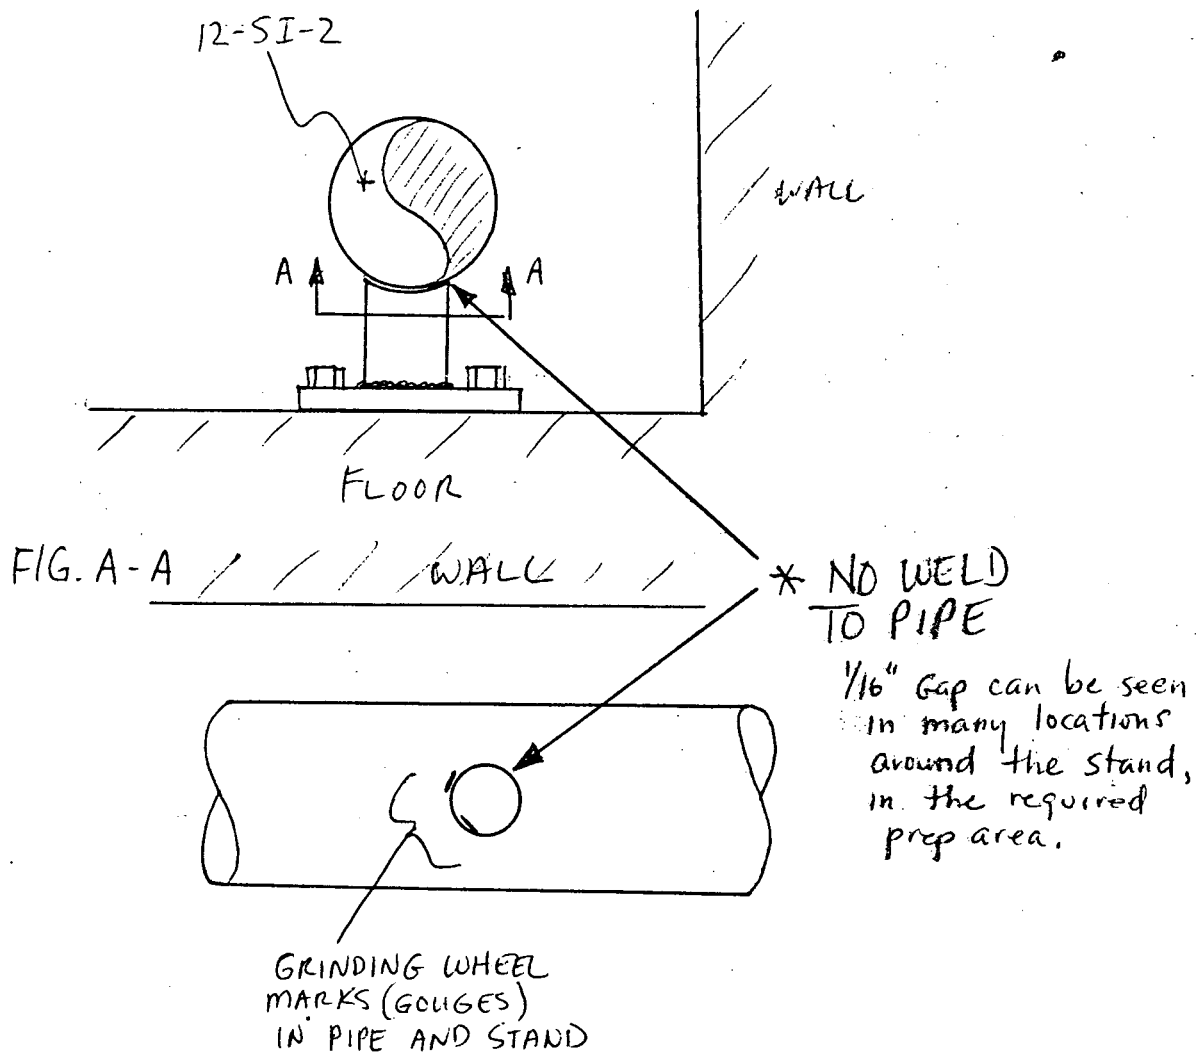 12-SI-2
WALL
A
A
FLOOR
FIG. A-A
WALL
* NO WELD
TO PIPE
1/16" Gap can be seen
in many locations
around the stand,
in the required
prep area.
GRINDING WHEEL
MARKS (GOUGES)
IN PIPE AND STAND